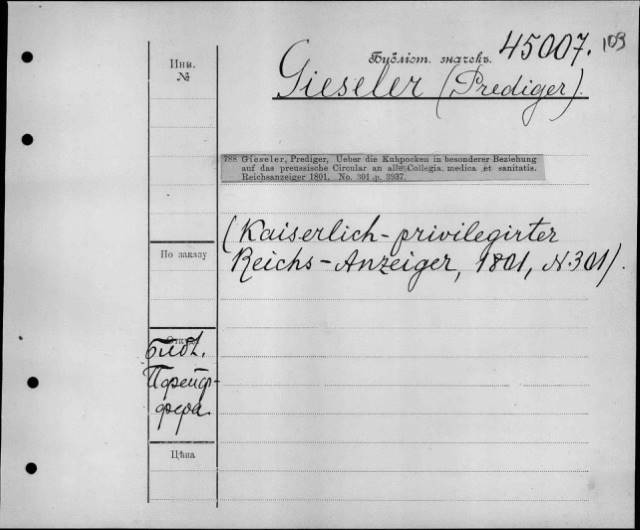 103
Библіот. значекъ. 45007.
Инв.
№
Gieseler (Prediger).
788 Gieseler, Prediger, Ueber die Kuhpocken in besonderer Beziehung
auf das preussische Circular an alle Collegia medica et sanitatis.
Reichsanzeiger 1801. No. 301 p. 3937.
(Kaiserlich-privilegirter
Reichs-Anzeiger, 1801, N.301).
По заказу
Библ.
Пфейф-
фера
Цѣна